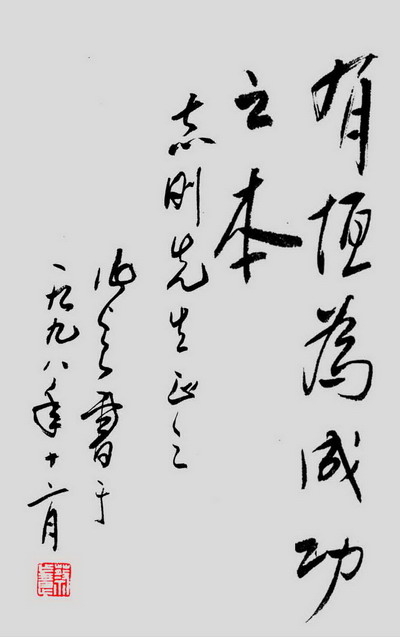 有恒為成功
之本
志刚先生正之
書于
一九九八年十二月